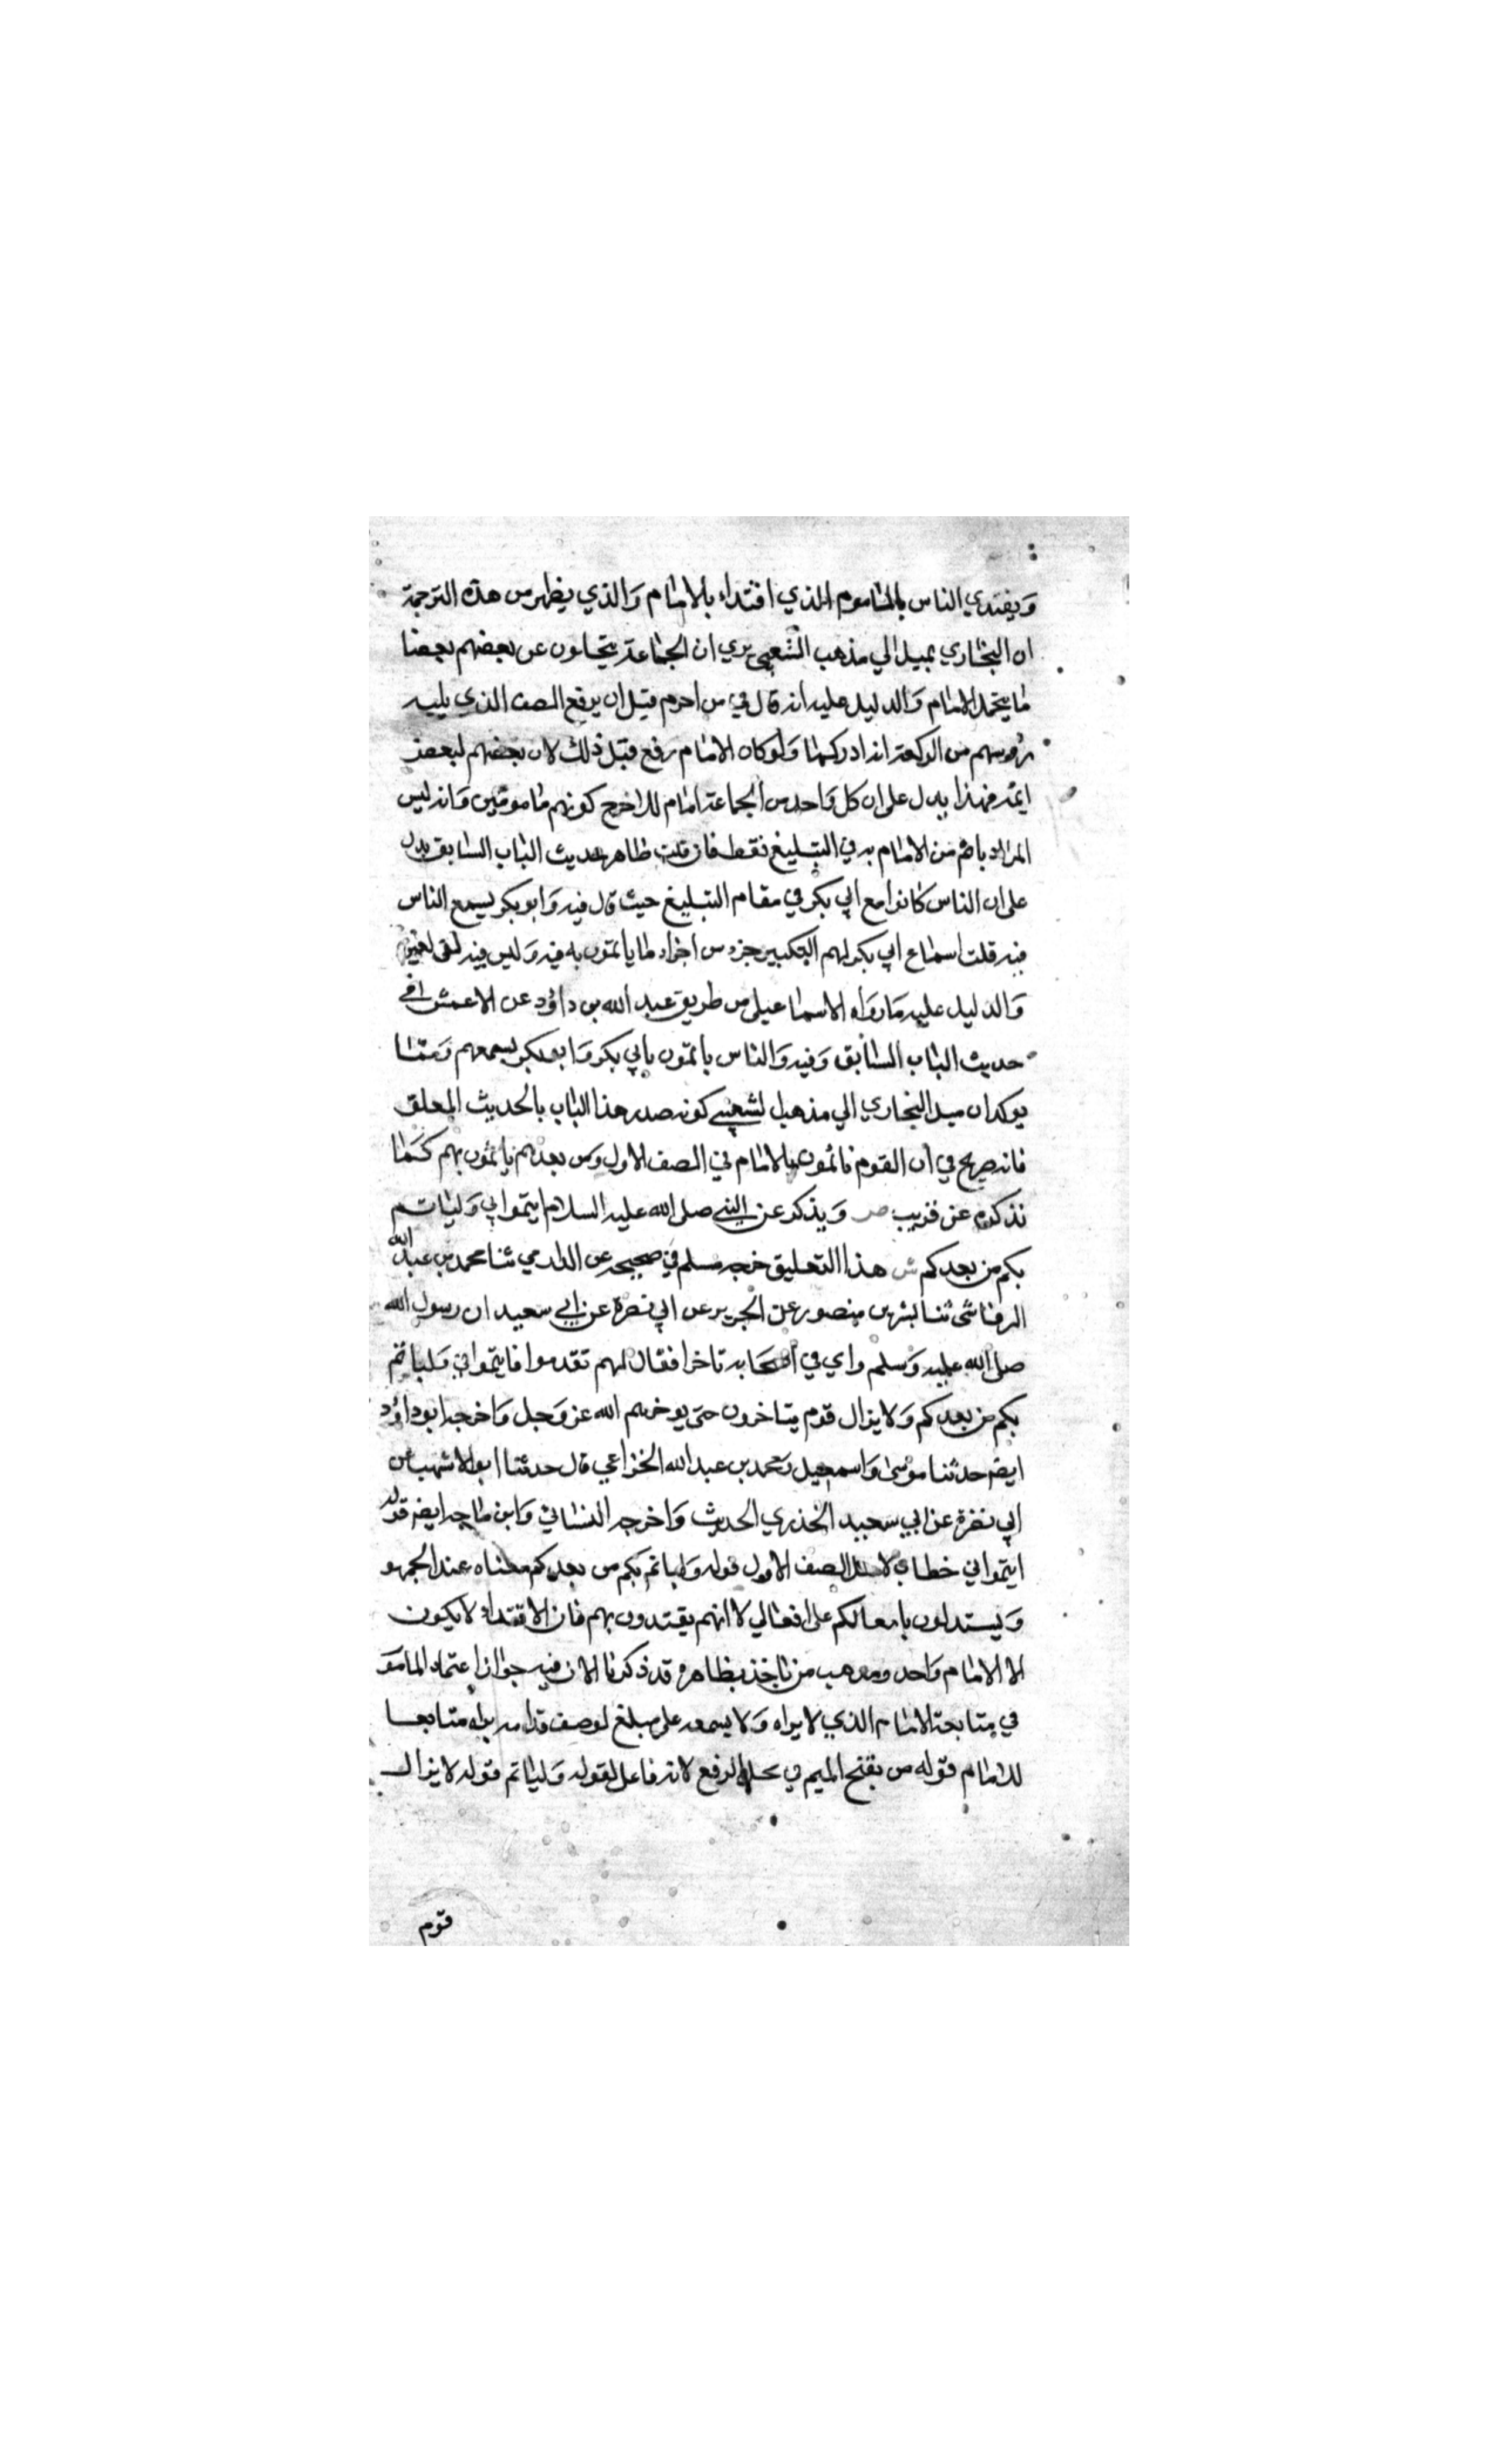 ويقتدي الناس بالماموم الذي اقتداء بالامام والذي يظهر من هذه الترجمة
ان البخاري يميل الي مذهب الشعبي يري ان الجماعة يتحملون عن بعضهم بعضا
ما يتحمل الامام والدليل عليه انه قال في من احرم قبل ان يرفع الصف الذي يليه
رؤسهم من الركعة انه ادركها ولو كان الامام رفع قبل ذلك لان بعضهم لبعض
ايمة فهذا يدل على ان كل واحد من الجماعة امام للاخر مع كونهم مامومين وانه ليس
المراد باتم من الامام به في التبليغ فقط فان قلت ظاهر حديث الباب السابق يدل
على ان الناس كانوا مع ابي بكر في مقام التبليغ حيث قال فيه وابو بكر يسمع الناس
فيه قلت اسماع ابي بكر لهم التكبير جزء من اجزاء ما ياتمون به فيه وليس فيه نفي لغيره
والدليل عليه ما رواه الاسماعيلي من طريق عبد الله بن داؤد عن الاعمش في
حديث الباب السابق وفيه والناس ياتمون بابي بكر وابو بكر يسمعهم ومما
يوكد ان ميل البخاري الي مذهب الشعبي كونه صدر هذا الباب بالحديث المعلق
فانه صريح في ان القوم ياتمون بالامام في الصف الاول ومن بعدهم ياتمون بهم كما
نذكره عن قريب ص ويذكر عن النبي صلى الله عليه السلام ايتموا بي ولياتم
بكم من بعدكم ش هذا التعليق خرجه مسلم في صحيحه عن الدارمي ثنا محمد بن عبد الله
الرقاشي ثنا بشر بن منصور عن الجرير عن ابي نضرة عن ابي سعيد ان رسول الله
صلى الله عليه وسلم راي في اصحابه تاخرا فقال لهم تقدموا فايتموا بي ولياتم
بكم من بعدكم ولا يزال قوم يتاخرون حتى يوخرهم الله عز وجل واخرجه ابو داؤد
ايضا حدثنا موسى واسمعيل ومحمد بن عبد الله الخزاعي قال حدثنا ابو الاشهب عن
ابي نضرة عن ابي سعيد الخذري الحديث واخرجه النسائي وابن ماجه ايضا قوله
ايتموا بي خطاب لاهل الصف الاول قوله ولياتم بكم من بعدكم معناه عند الجمهو
ويستدلون بافعالكم على افعالي لا انهم يقتدون بهم فان الاقتداء لا يكون
الا لامام واحد ومذهب من ياخذ بظاهره قد ذكرنا الان فيه جواز اعتماد المامو
في متابعة الامام الذي لا يراه ولا يسمعه على مبلغ او صف قدامه يراه متابعا
للامام قوله من بفتح الميم في محل الرفع لانه فاعل لقوله ولياتم قوله لا يزال
قوم